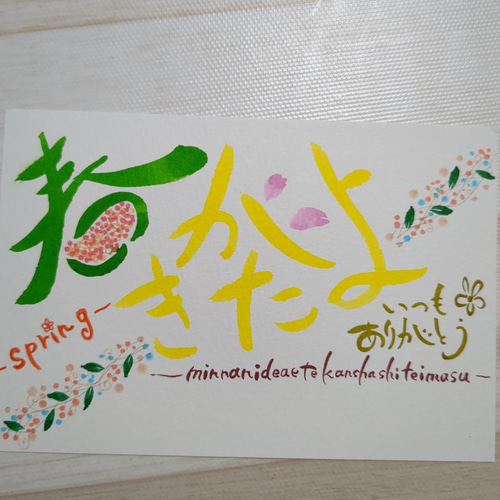 春が
きたよ
~spring~
いつも
ありがとう
-minnanideaetekanshashiteimasu-